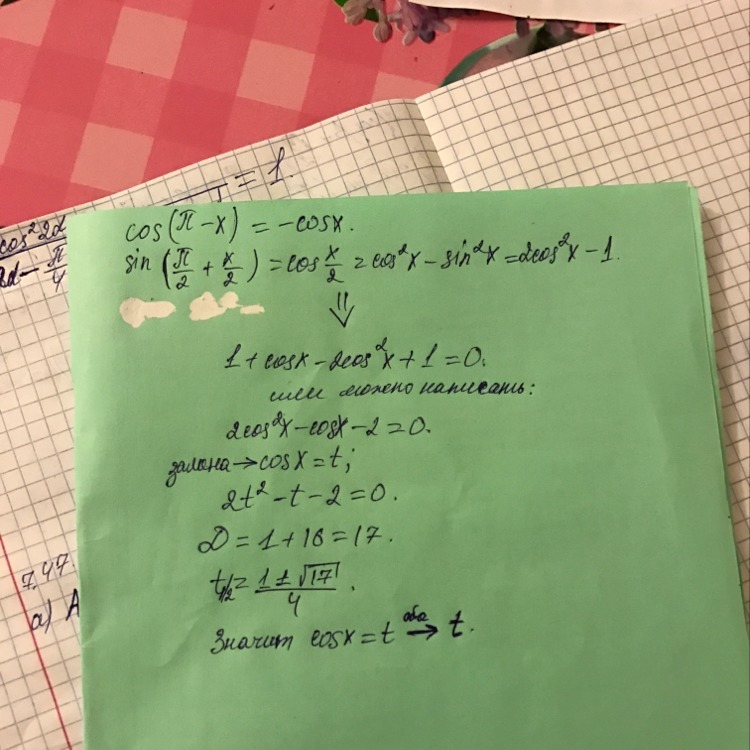 = 1.
cos²2α
cos(π-x) = -cosx.
sin(π/2 + x/2) = cos x/2 = cos²x - sin²x = 2cos²x - 1.
⇓
1 + cosx - 2cos²x + 1 = 0.
или можно написать:
2cos²x - cosx - 2 = 0.
замена → cosx = t;
2t² - t - 2 = 0.
D = 1 + 16 = 17.
t1/2 = (1 ± √17)/4.
Значит cosx = t оба → t.
7.47.
а) А